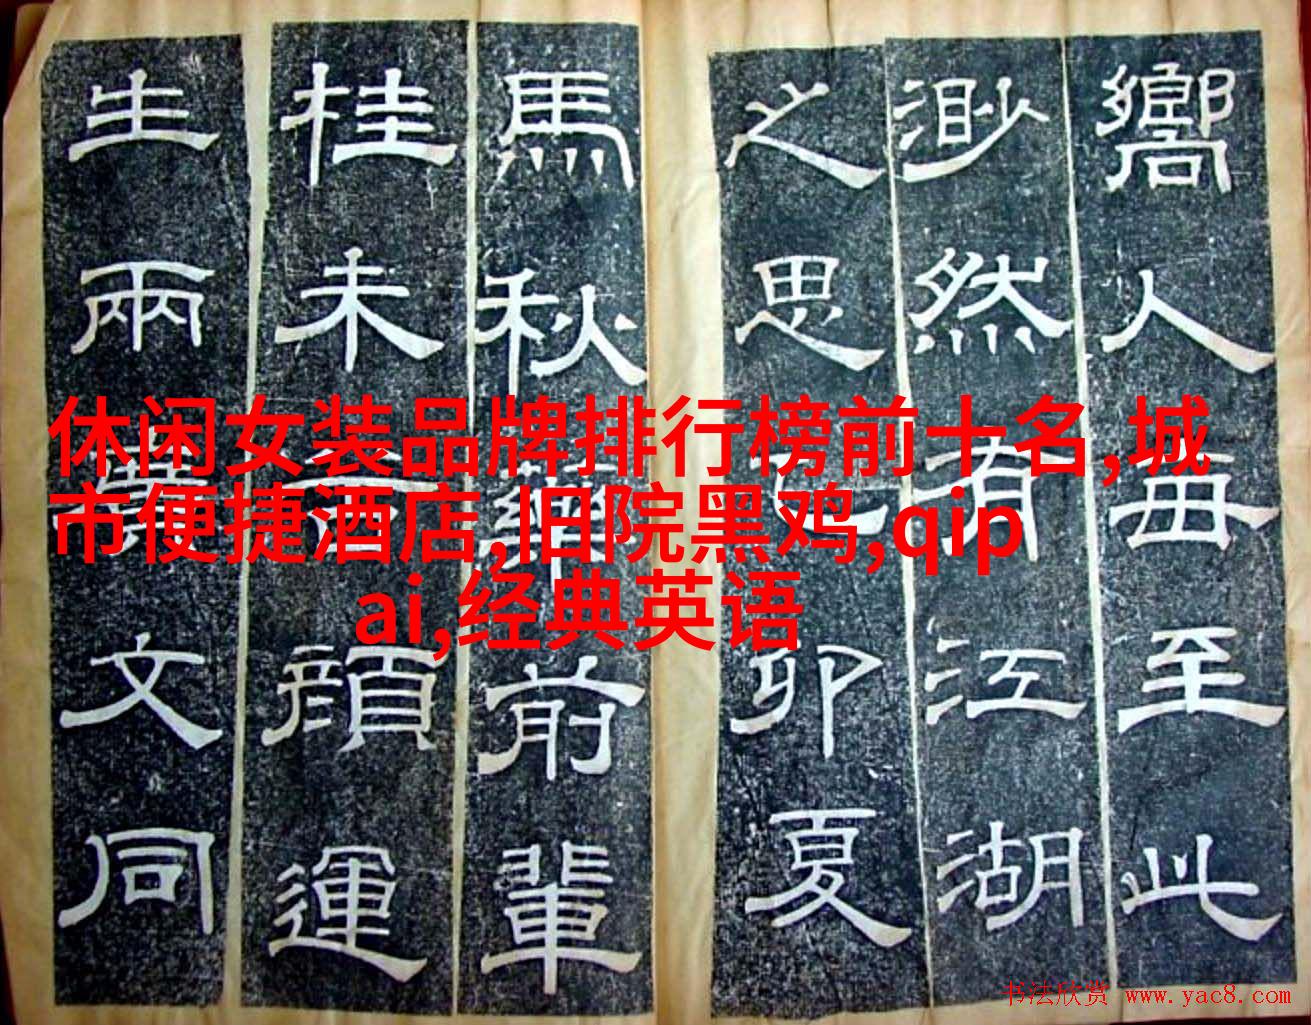 嚮人每至此
渺然有江湖
之思卯夏
馬秋藥前輩
桂未谷顏運
生兩農文同
休闲女装品牌排行榜前十名,城
市便捷酒店,旧院黑鸡,qip
ai,经典英语
书法欣赏 www.yac8.com